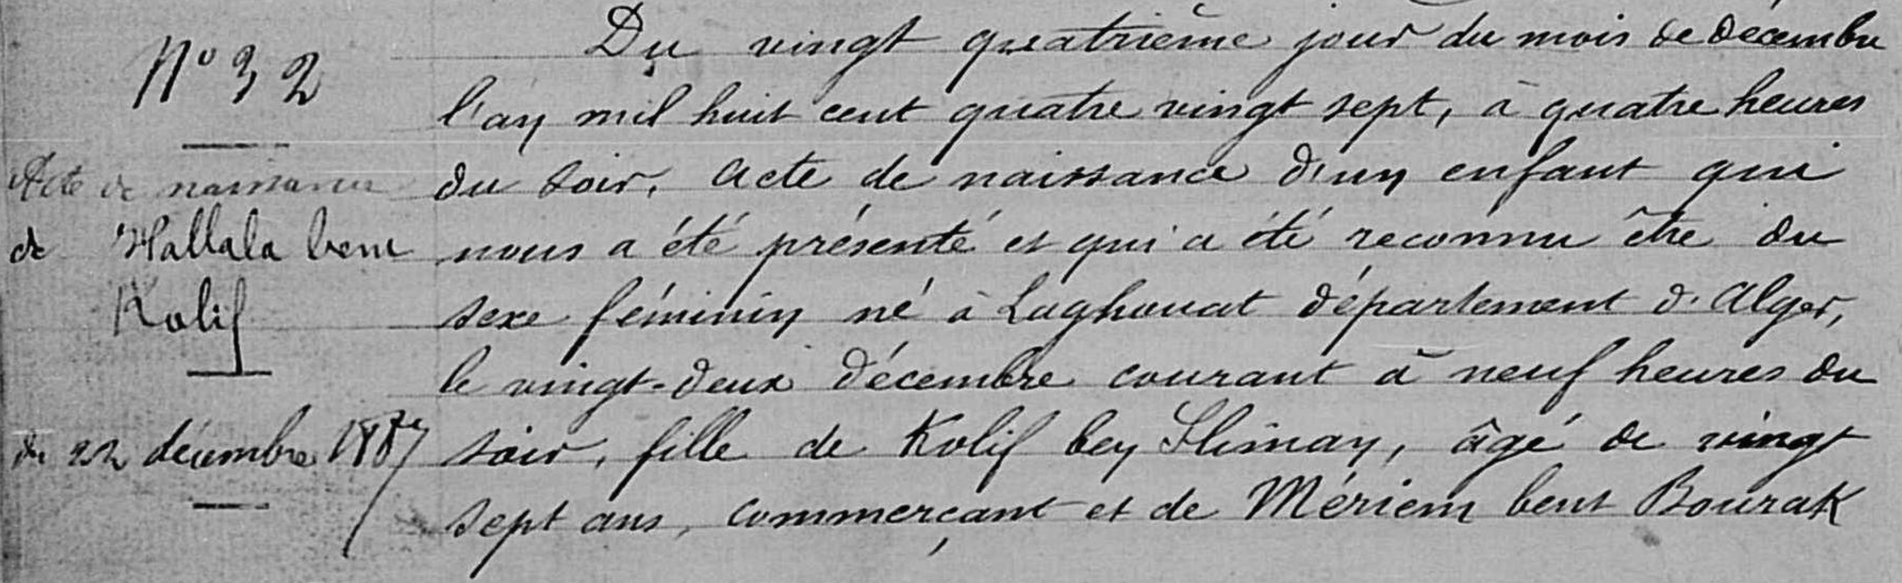 N° 32
Acte de naissance
de Hallala bent
Kolif
du 22 décembre 1887
Du vingt quatrième jour du mois de décembre
l'an mil huit cent quatre vingt sept, à quatre heures
du soir. Acte de naissance d'un enfant qui
nous a été présenté et qui a été reconnu être du
sexe féminin né à Laghouat département d'Alger,
le vingt-deux décembre courant à neuf heures du
soir, fille de Kolif ben Sliman, âgé de vingt
sept ans, commerçant et de Mériem bent Bourak